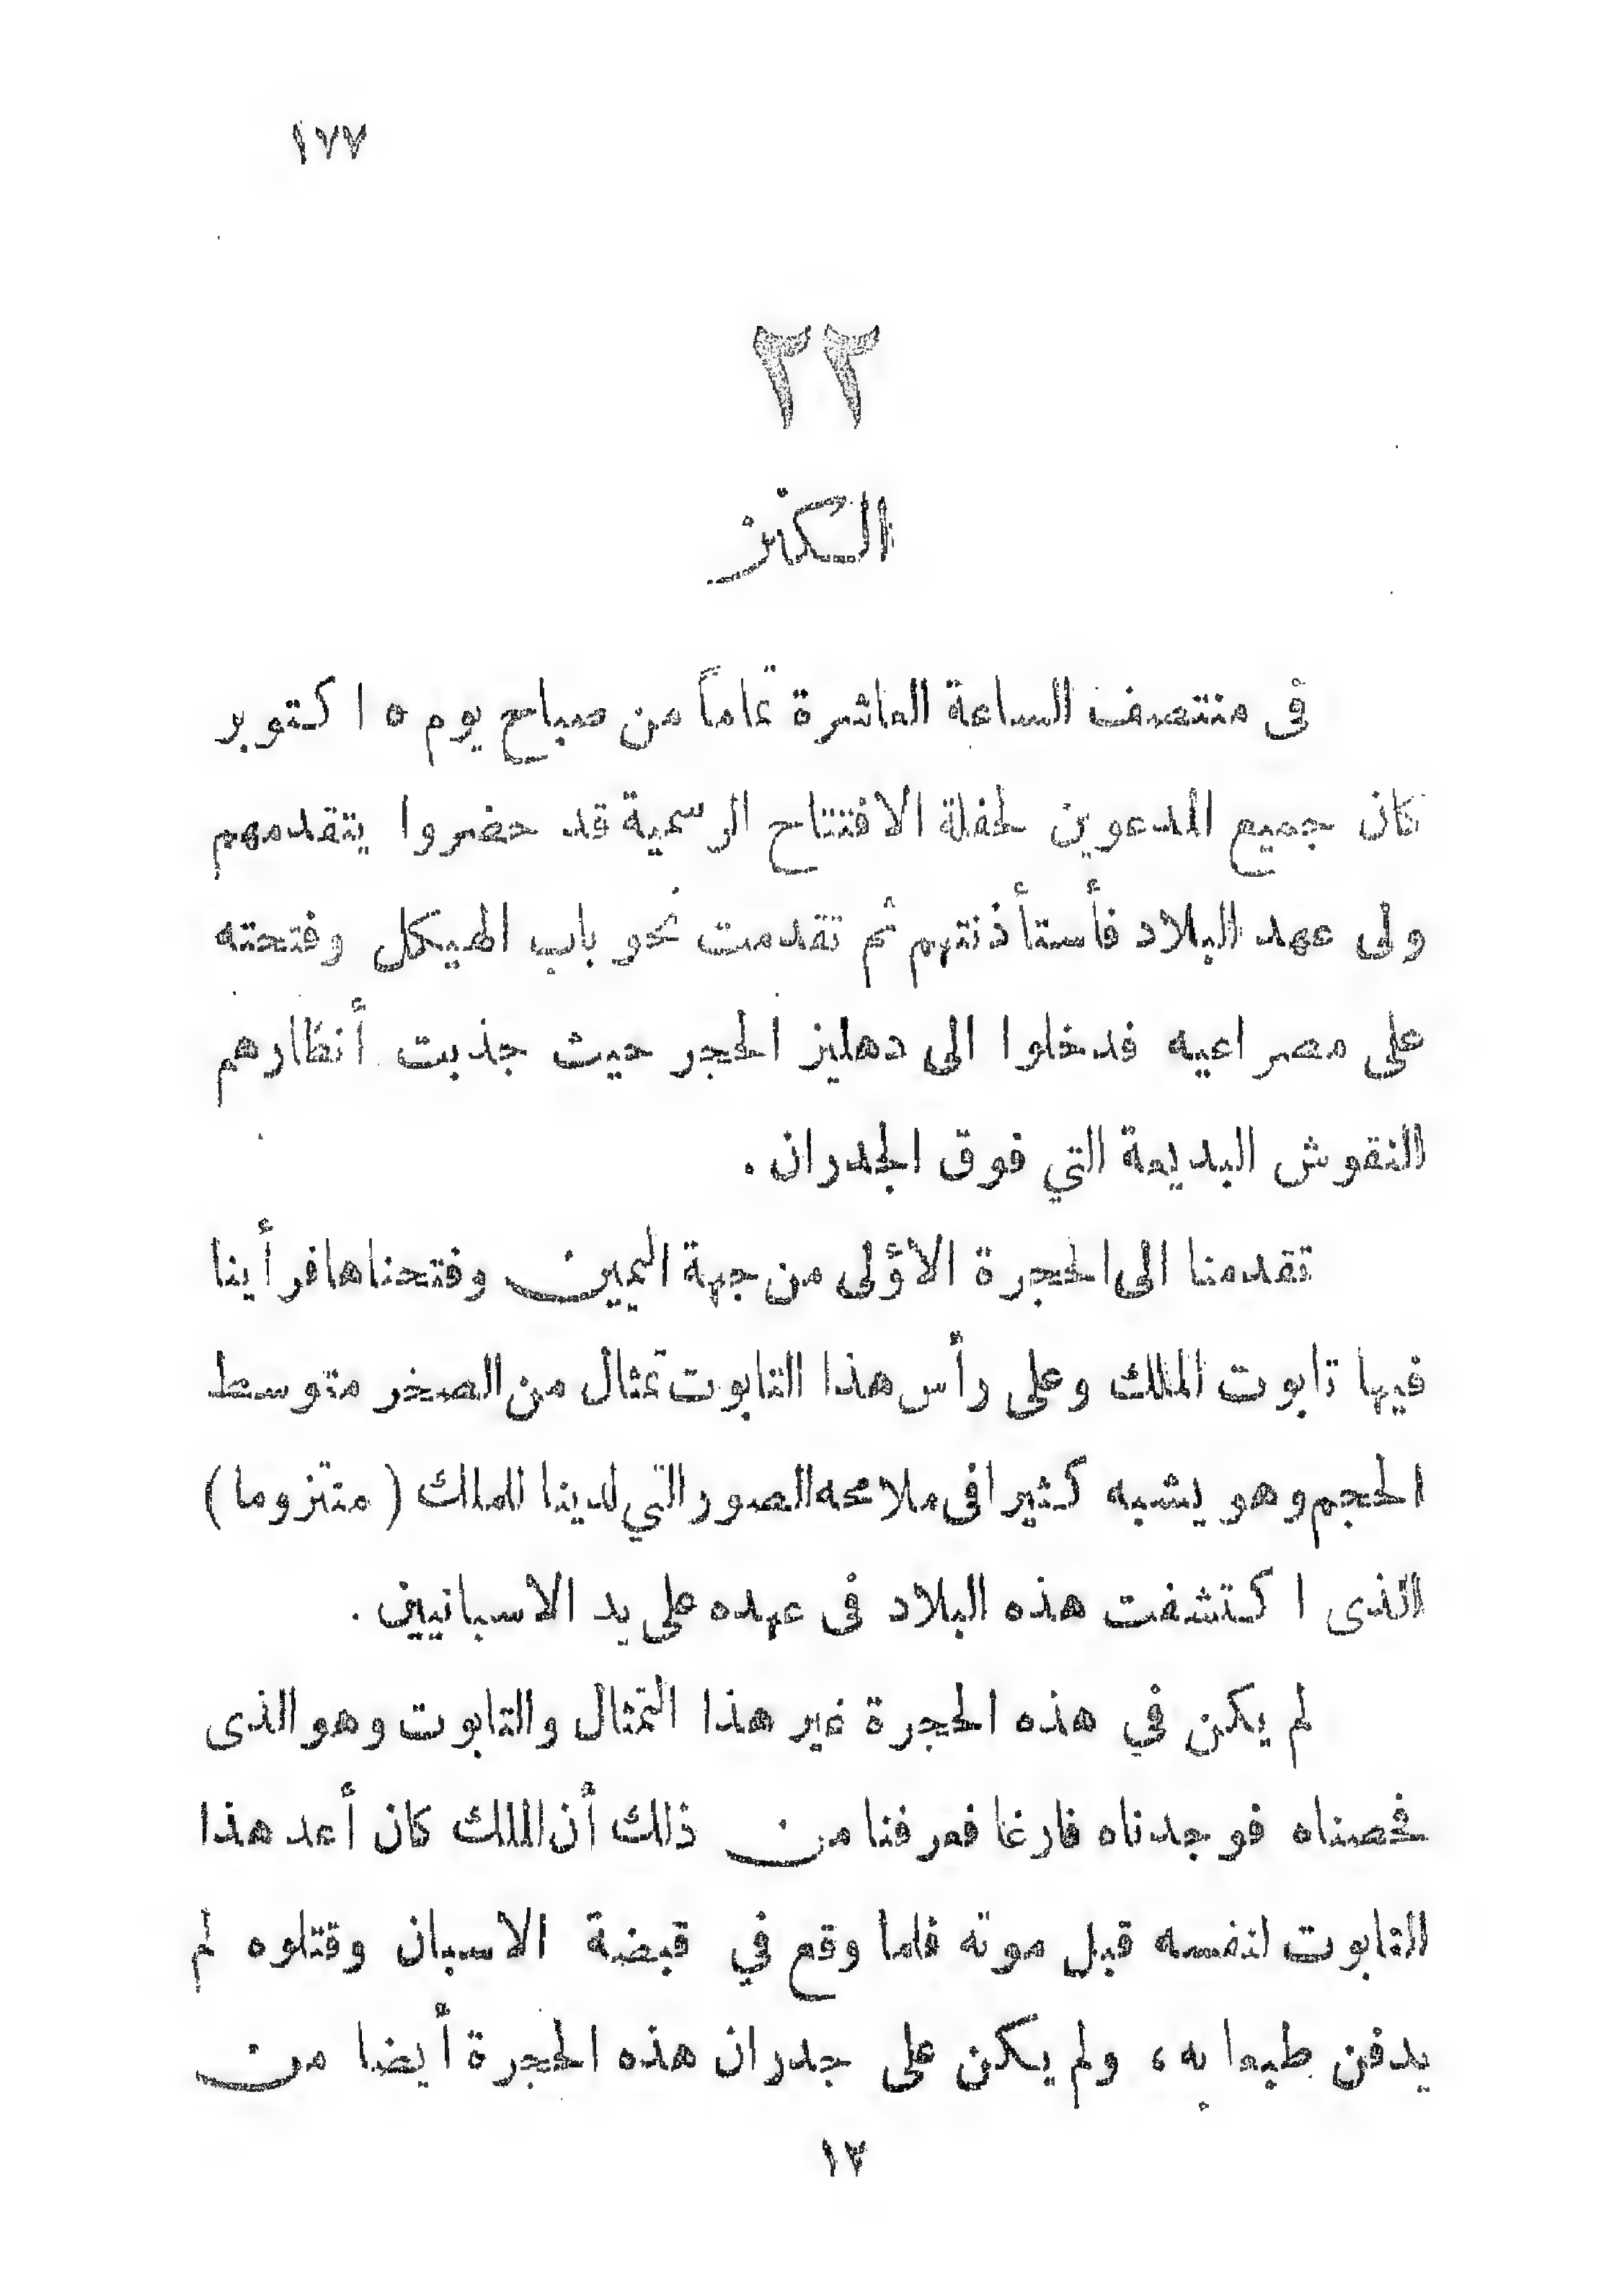 ١٧٧
٢٢
الكنز
فى منتصف الساعة العاشرة تماماً من صباح يوم ٥ اكتوبر
كان جميع المدعوين لحفلة الافتتاح الرسمية قد حضروا يتقدمهم
ولى عهد البلاد فأستأذنتهم ثم تقدمت نحو باب الهيكل وفتحته
على مصراعيه فدخلوا الى دهليز الحجر حيث جذبت أنظارهم
النقوش البديعة التي فوق الجدران .
تقدمنا الى الحجرة الأولى من جهة اليمين وفتحناها فرأينا
فيها تابوت الملك وعلى رأس هذا التابوت تمثال من الصخر متوسط
الحجم وهو يشبه كثيرا فى ملامحه الصور التي لدينا للملك ( منتزوما )
الذى اكتشفت هذه البلاد فى عهده على يد الاسبانيين .
لم يكن في هذه الحجرة غير هذا التمثال والتابوت وهو الذى
فحصناه فوجدناه فارغا فعرفنا من ذلك أن الملك كان أعد هذا
التابوت لنفسه قبل موته فلما وقع في قبضة الاسبان وقتلوه لم
يدفن طبعا به ، ولم يكن على جدران هذه الحجرة أيضا من
١٢